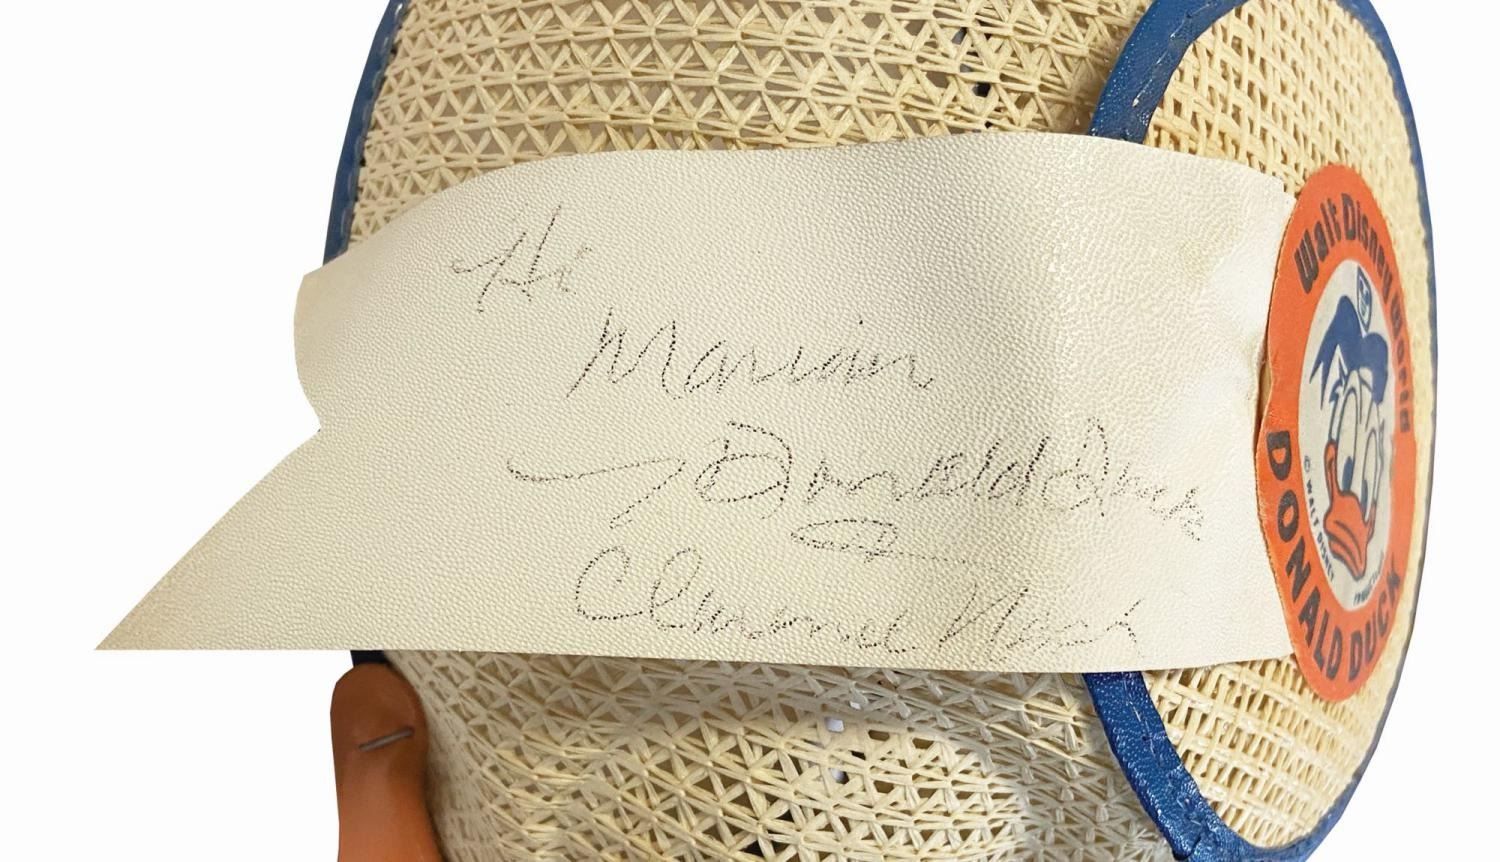 Hi
Marion
Donald Duck
Clarence Nash
Walt Disney World
DONALD DUCK
© WALT DISNEY